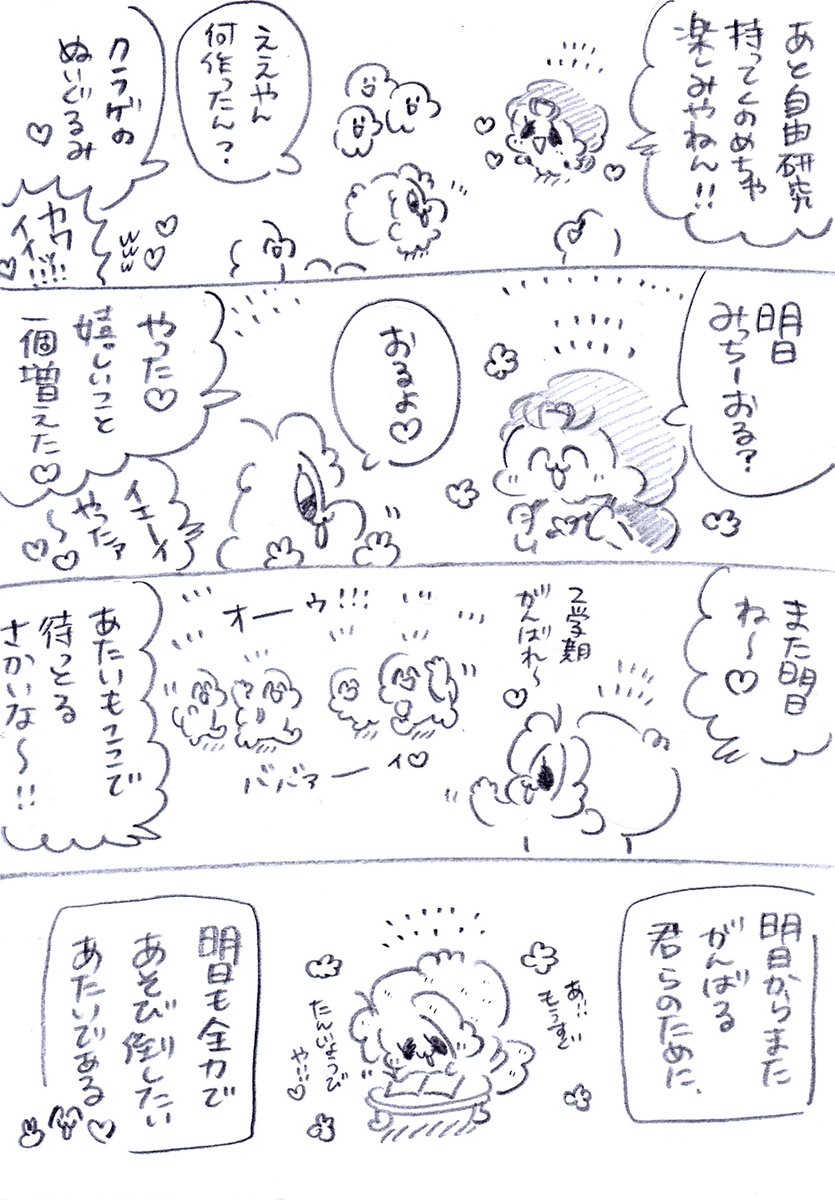 あと自由研究
持ってくのめちゃ
楽しみやねん!!
ええやん
何作ったん?
クラゲの
ぬいぐるみ
♡
カワ
イイ!!!
www
明日
みっちーおる?
おるよ♡
やった♡
嬉しいこと
一個増えた♡
イエーイ
やったァ
〜♡♡
また明日
ね〜♡
2学期
がんばれ〜
♡
オーゥ!!!
ババァーイ♡
あたいもここで
待っとる
さかいな〜!!
明日からまた
がんばる
君らのために、
あ!!
もうすぐ
たんじょうび
や!!♡
明日も全力で
あそび倒したい
あたいである